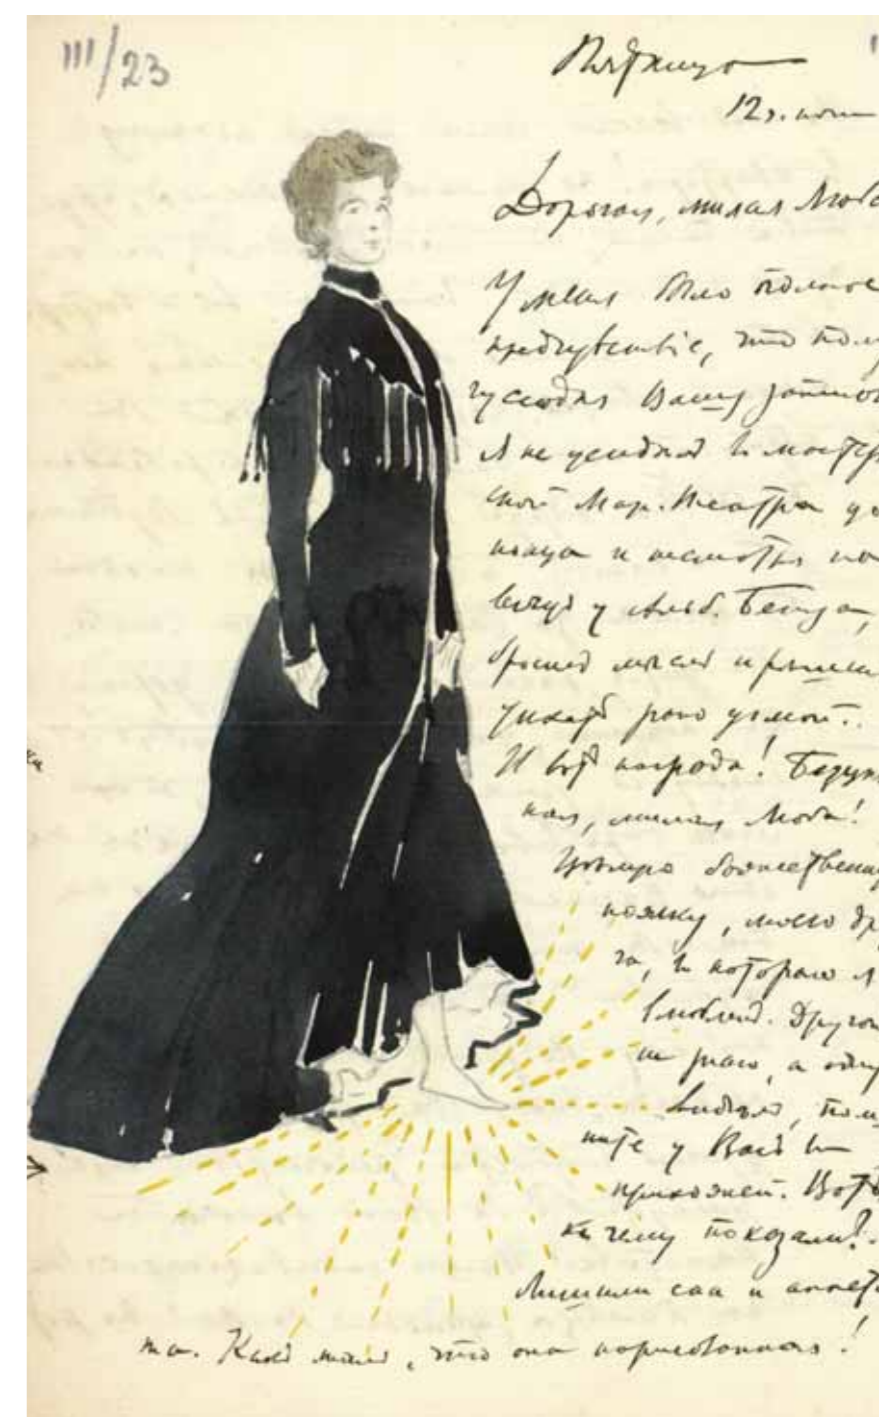 III/23
Пятница
12 ч. ночи
Дорогая, милая Люба
У меня было полное
предчувствіе, что полу
сегодня Вашу
Я не усидѣлъ въ мастер
ской Мар. Театра до
конца и несмотря на
вечеръ у Альб. Бенуа,
бросилъ и рѣшил
уѣхать рано домой.
И вотъ награда!
ная, милая Люба!
Цѣлую божественну
ножку, моего др
га, въ котораго я
влюбленъ. Другой
не знаю, а одну
видѣлъ, пом
ните у Васъ въ
прихожей. Вотъ
къ чему показали?
Лишили сна и аппети
та. Какъ жаль, что она нарисованная!